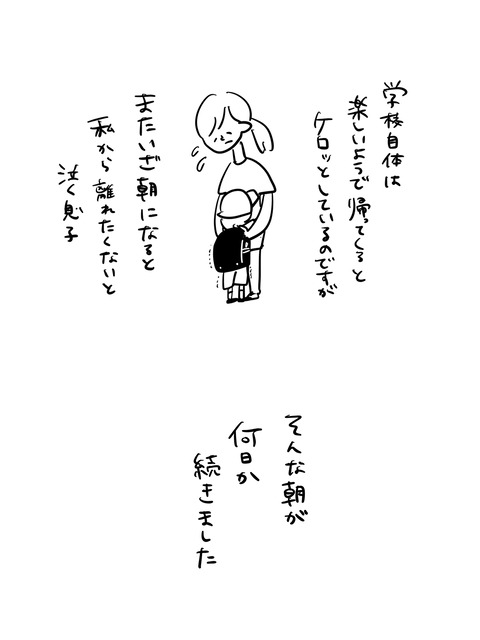 学校自体は
楽しいようで帰ってくると
ケロッとしているのですが
またいざ朝になると
私から離れたくないと
泣く息子
そんな朝が
何日か
続きました